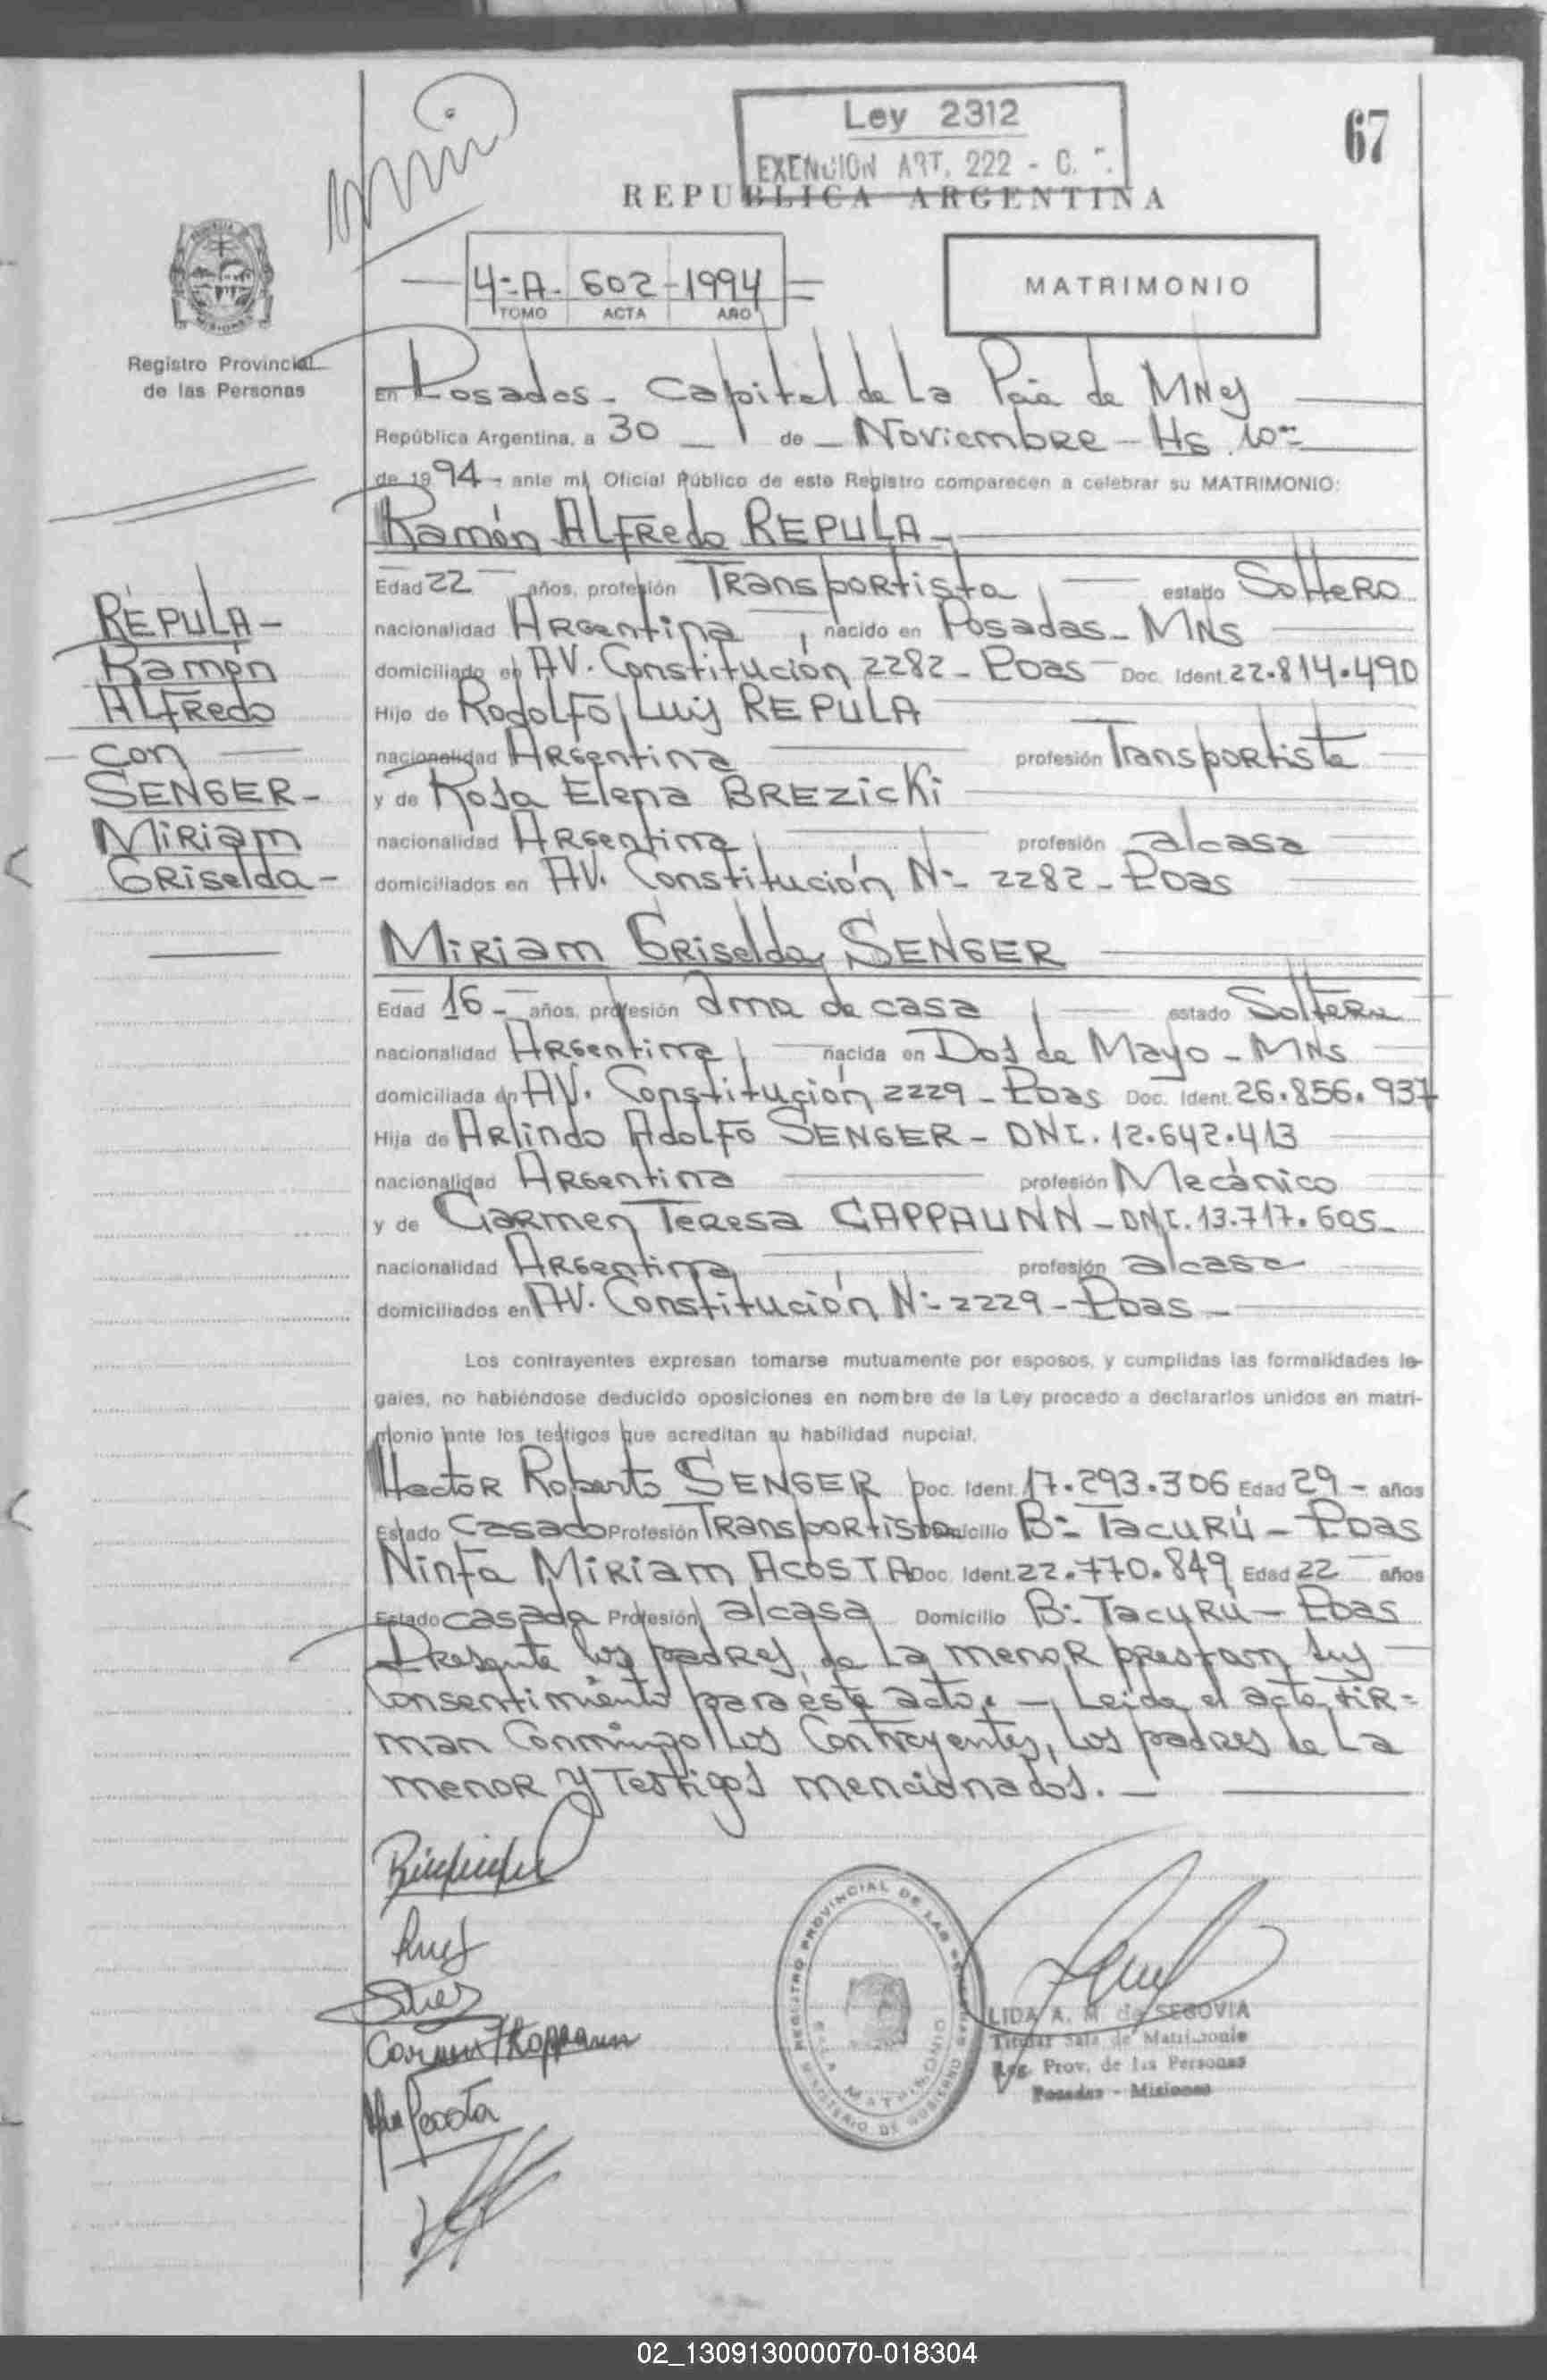 Ley 2312
EXENCION ART. 222 - C.
67
REPUBLICA ARGENTINA
4-A- 602 -1994
TOMO ACTA AÑO
MATRIMONIO
Registro Provincial
de las Personas
En Posadas - Capital de La Pcia de MNes
República Argentina, a 30 de Noviembre - Hs 10
de 1994 - ante mí, Oficial Público de este Registro comparecen a celebrar su MATRIMONIO:
Ramón ALFRedo REPULA
Edad 22 años, profesión TRansportista estado SolteRo
nacionalidad ARGentina, nacido en Posadas - MNS
domiciliado en AV. Constitución 2282 - Pdas Doc. Ident. 22.814.490
Hijo de RodoLFo Luis REPULA
nacionalidad ARGentina profesión Transportista
y de Rosa Elena BREZicKi
nacionalidad ARGentina profesión alcasa
domiciliados en AV. Constitución Nº 2282 - Pdas
REPULA -
Ramón
ALFRedo
con
SENGER -
MiRiam
GRiselda -
MiRiam GRiselda SENGER
Edad 16 - años, profesión ama de casa estado SolteRa
nacionalidad ARGentina, nacida en Dos de Mayo - MNS
domiciliada en AV. Constitución 2229 - Pdas Doc. Ident. 26.856.937
Hija de ARlindo AdoLFo SENGER - DNI. 12.642.413
nacionalidad ARGentina profesión Mecánico
y de CaRmen TeResa GAPPAUNN - DNI. 13.717.605
nacionalidad ARGentina profesión alcasa
domiciliados en AV. Constitución Nº 2229 - Pdas -
Los contrayentes expresan tomarse mutuamente por esposos, y cumplidas las formalidades le-
gales, no habiéndose deducido oposiciones en nombre de la Ley procedo a declararlos unidos en matri-
monio ante los testigos que acreditan su habilidad nupcial.
HectoR Roberto SENGER Doc. Ident. 17.293.306 Edad 29 - años
Estado Casado Profesión TRansportista Domicilio Bº TacuRú - Pdas
Ninfa MiRiam ACOSTA Doc. Ident. 22.770.849 Edad 22 años
Estado casada Profesión alcasa Domicilio Bº TacuRú - Pdas
PResente los padRes de La menoR prestam sus
Consentimiento para éste acto. - Leida el acta FiR=
man Conmingo los Contrayentes, los padres de La
menoR y Testigos mencionados. -
REGISTRO PROVINCIAL DE LAS PERSONAS
MINISTERIO DE GOBIERNO
SALA MATRIMONIO
LIDA A. M. de SEGOVIA
Titular Sala de Matrimonio
Reg. Prov. de las Personas
Posadas - Misiones
02_130913000070-018304